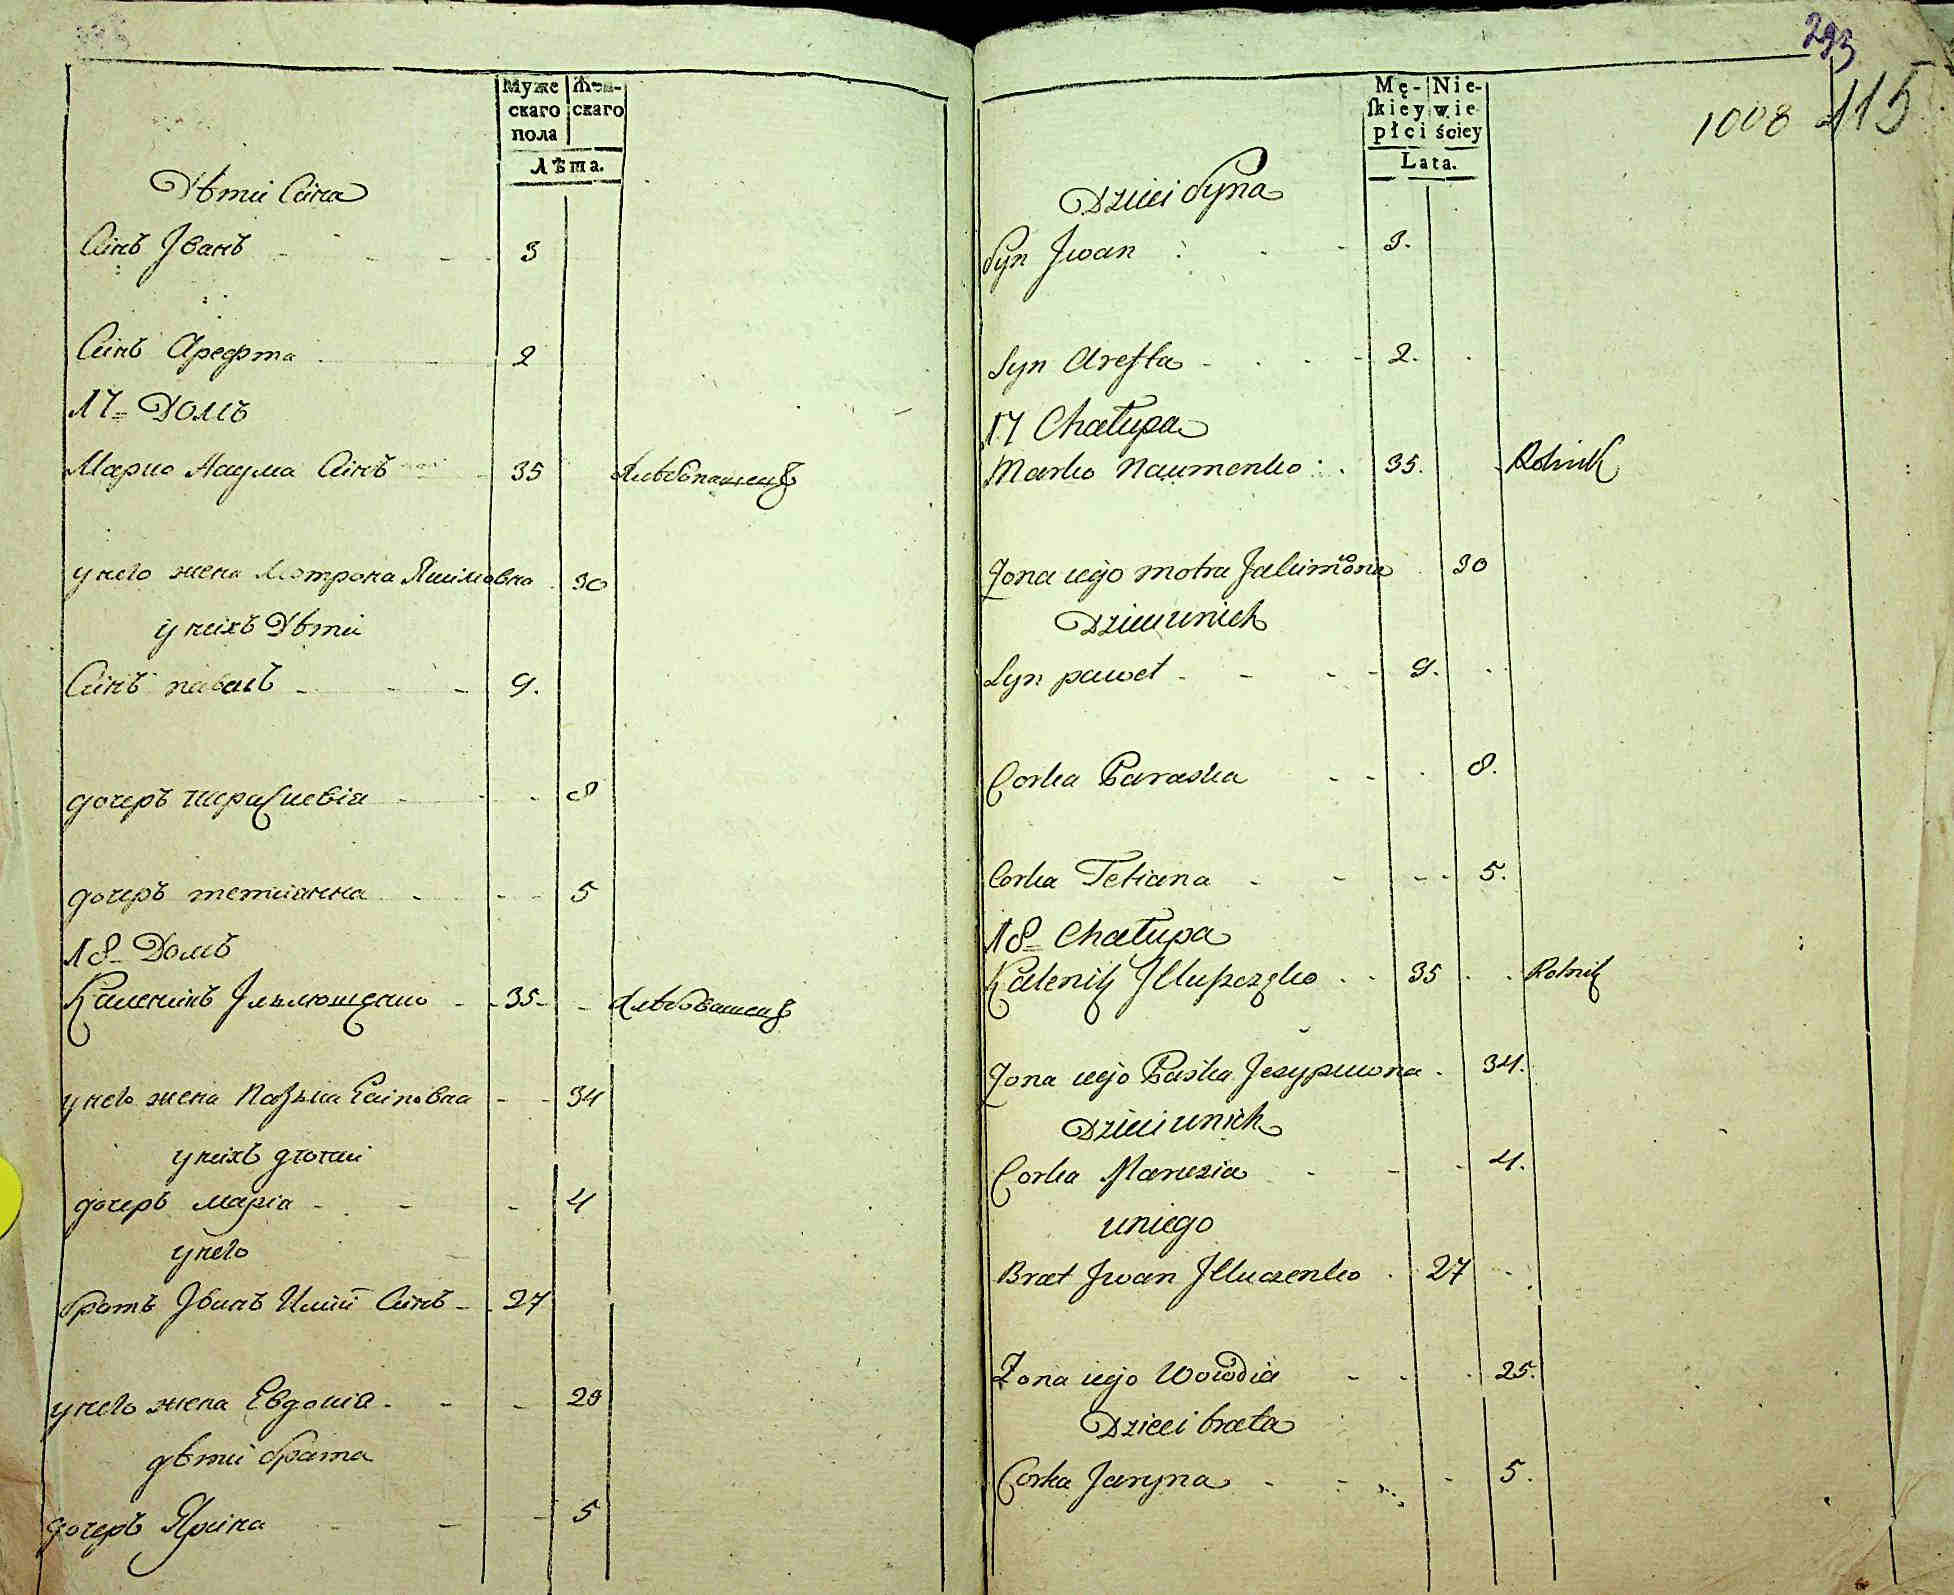 Муже Жен-
скаго скаго
пола
Лѣта.
Дѣти Сина
Синъ Іванъ 3
Синъ Арефта 2
17= Домъ
Марко Наума Синъ 35 Хлѣбопашецъ
у него жена Мотрона Якимовна 30
у нихъ Дѣти
Синъ павелъ 9.
дочеръ параскевія 8
дочеръ тетианна 5
18= Домъ
Каленикъ Ілълюшенко 35 Хлѣбопашецъ
у него жена Пазъка 34
у нихъ
дочеръ марія 4
у него
братъ Іванъ Илиі Синъ 27
у него жена Евдокіа
дѣти брата
дочеръ Ярина 5
293
1008 115
Mę- Nie-
ſkiey wie-
płci ściey
Lata.
Dzieci Syna
Syn Jwan 3.
Syn Arefta 2.
17 Chałupa
Marko Naumenko 35. Rolnik
Zona iego motra Jakimowna 30
Dzieci unich
Syn paweł 9.
Corka Paraska 8.
Corka Tetiana 5.
18= Chałupa
Kalenik 35 Rolnik
Zona iego Paska 34.
Dzieci unich
Corka Marusia 4.
uniego
Brat Jwan Jlluczenko 27
Zona iego 25.
Dzieci brata
Corka Jaryna 5.